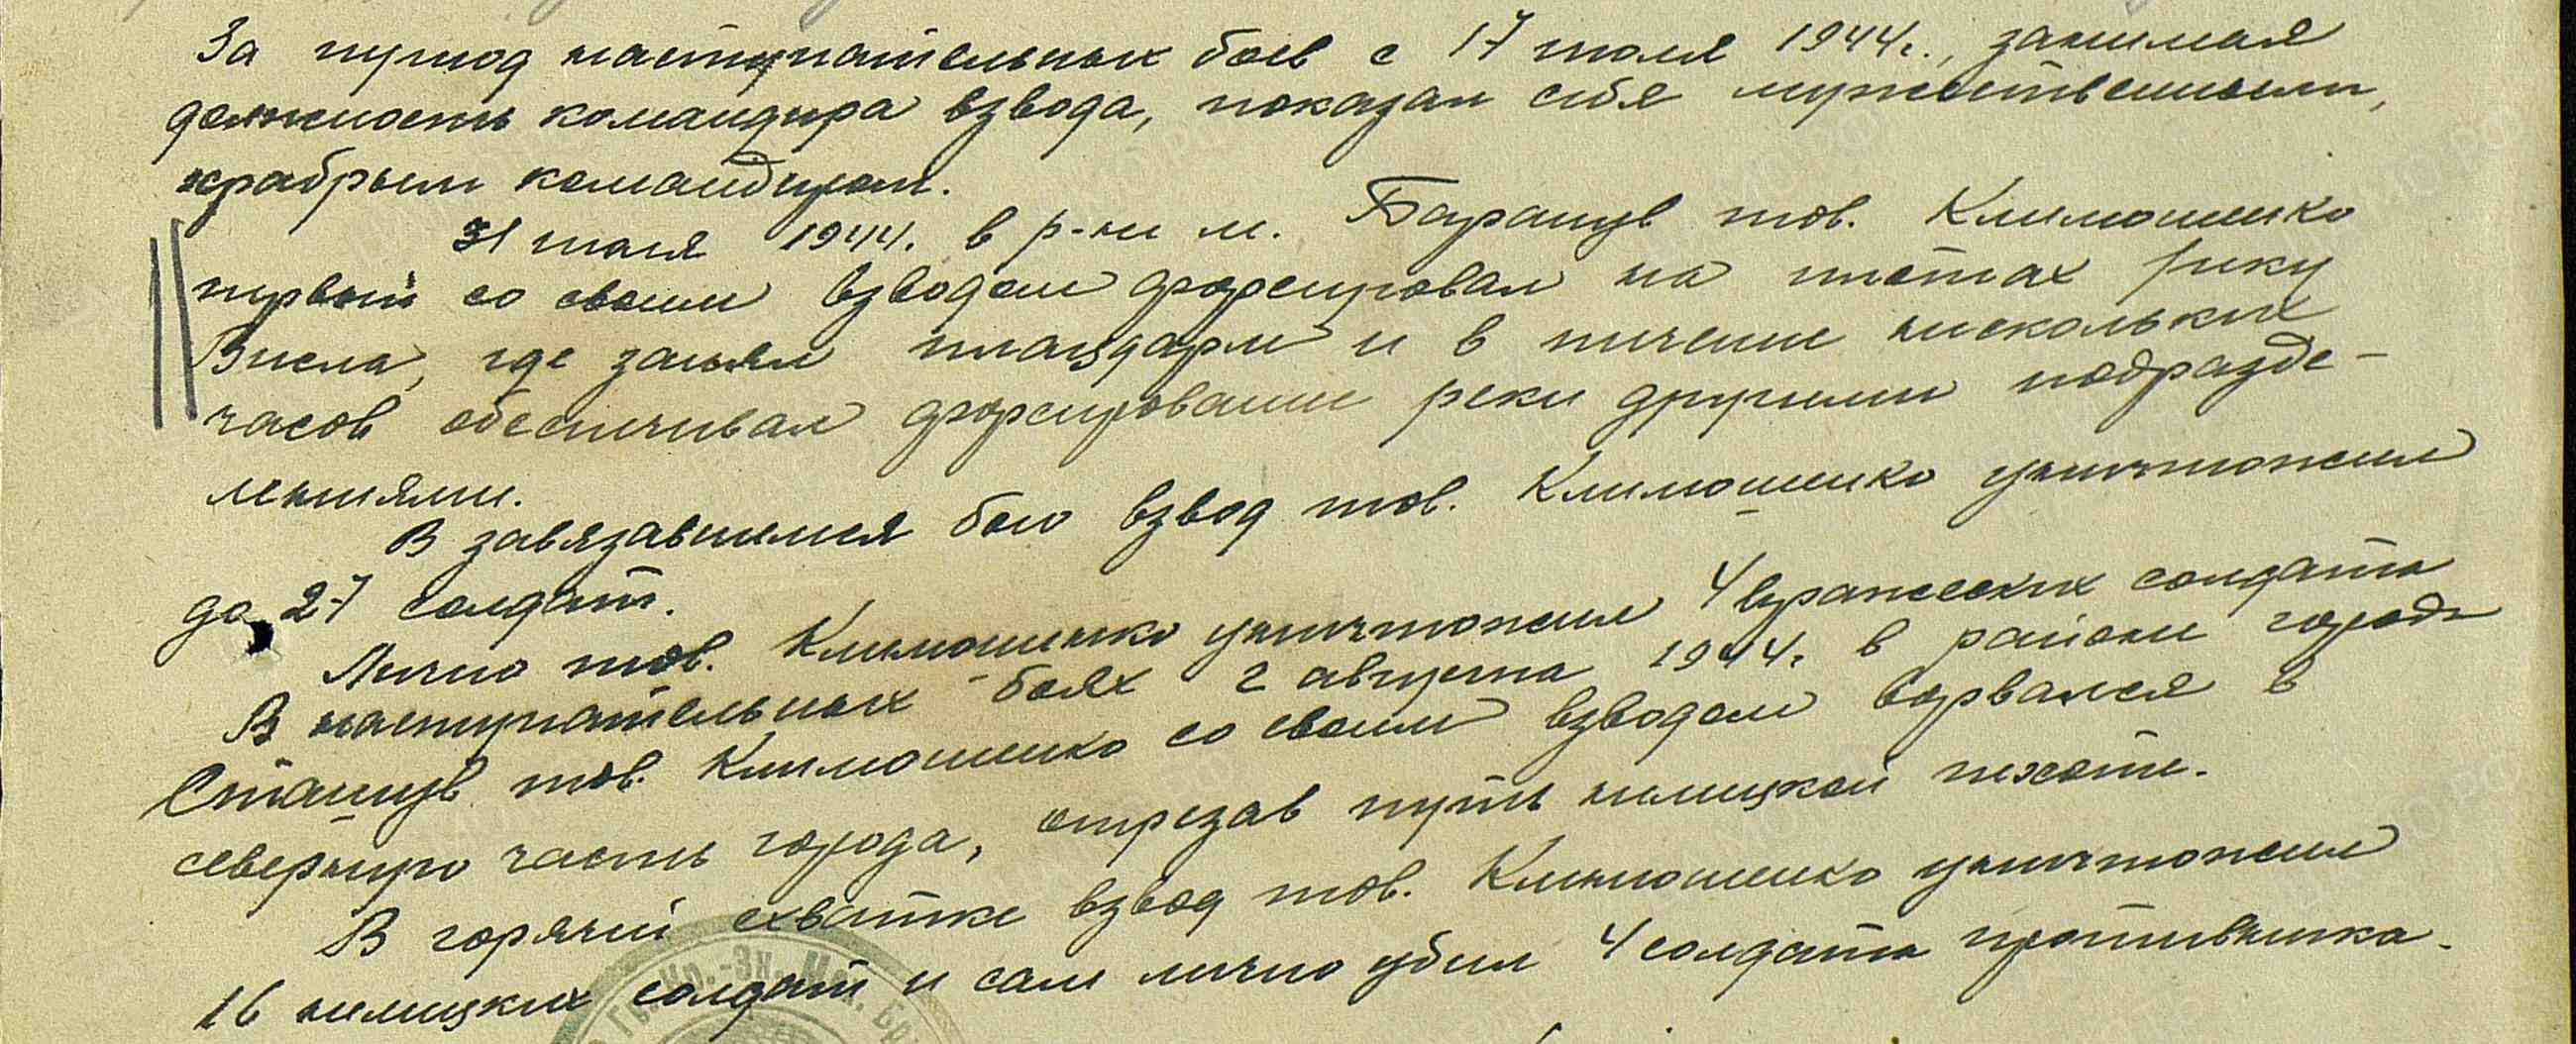 За период наступательных боев с 17 июля 1944г., занимая
должность командира взвода, показал себя мужественным,
храбрым командиром.
31 июля 1944г. в р-не м. Баранув тов. Климошенко
первый со своим взводом форсировал на плотах реку
Висла, где занял плацдарм и в течение нескольких
часов обеспечивал форсирование реки другими подразде-
лениями.
В завязавшемся бою взвод тов. Климошенко уничтожил
до 27 солдат.
Лично тов. Климошенко уничтожил 4 вражеских солдата
В наступательных боях 2 августа 1944г. в районе города
Сташув тов. Климошенко со своим взводом ворвался в
северную часть города, отрезав путь немецкой пехоте.
В горячей схватке взвод тов. Климошенко уничтожил
16 немецких солдат и сам лично убил 4 солдата противника.